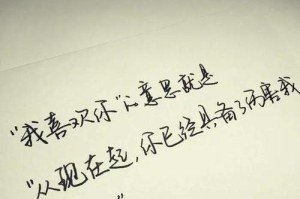 “我喜欢你”的意思就是
“从现在起，你已经具备了伤害我
”